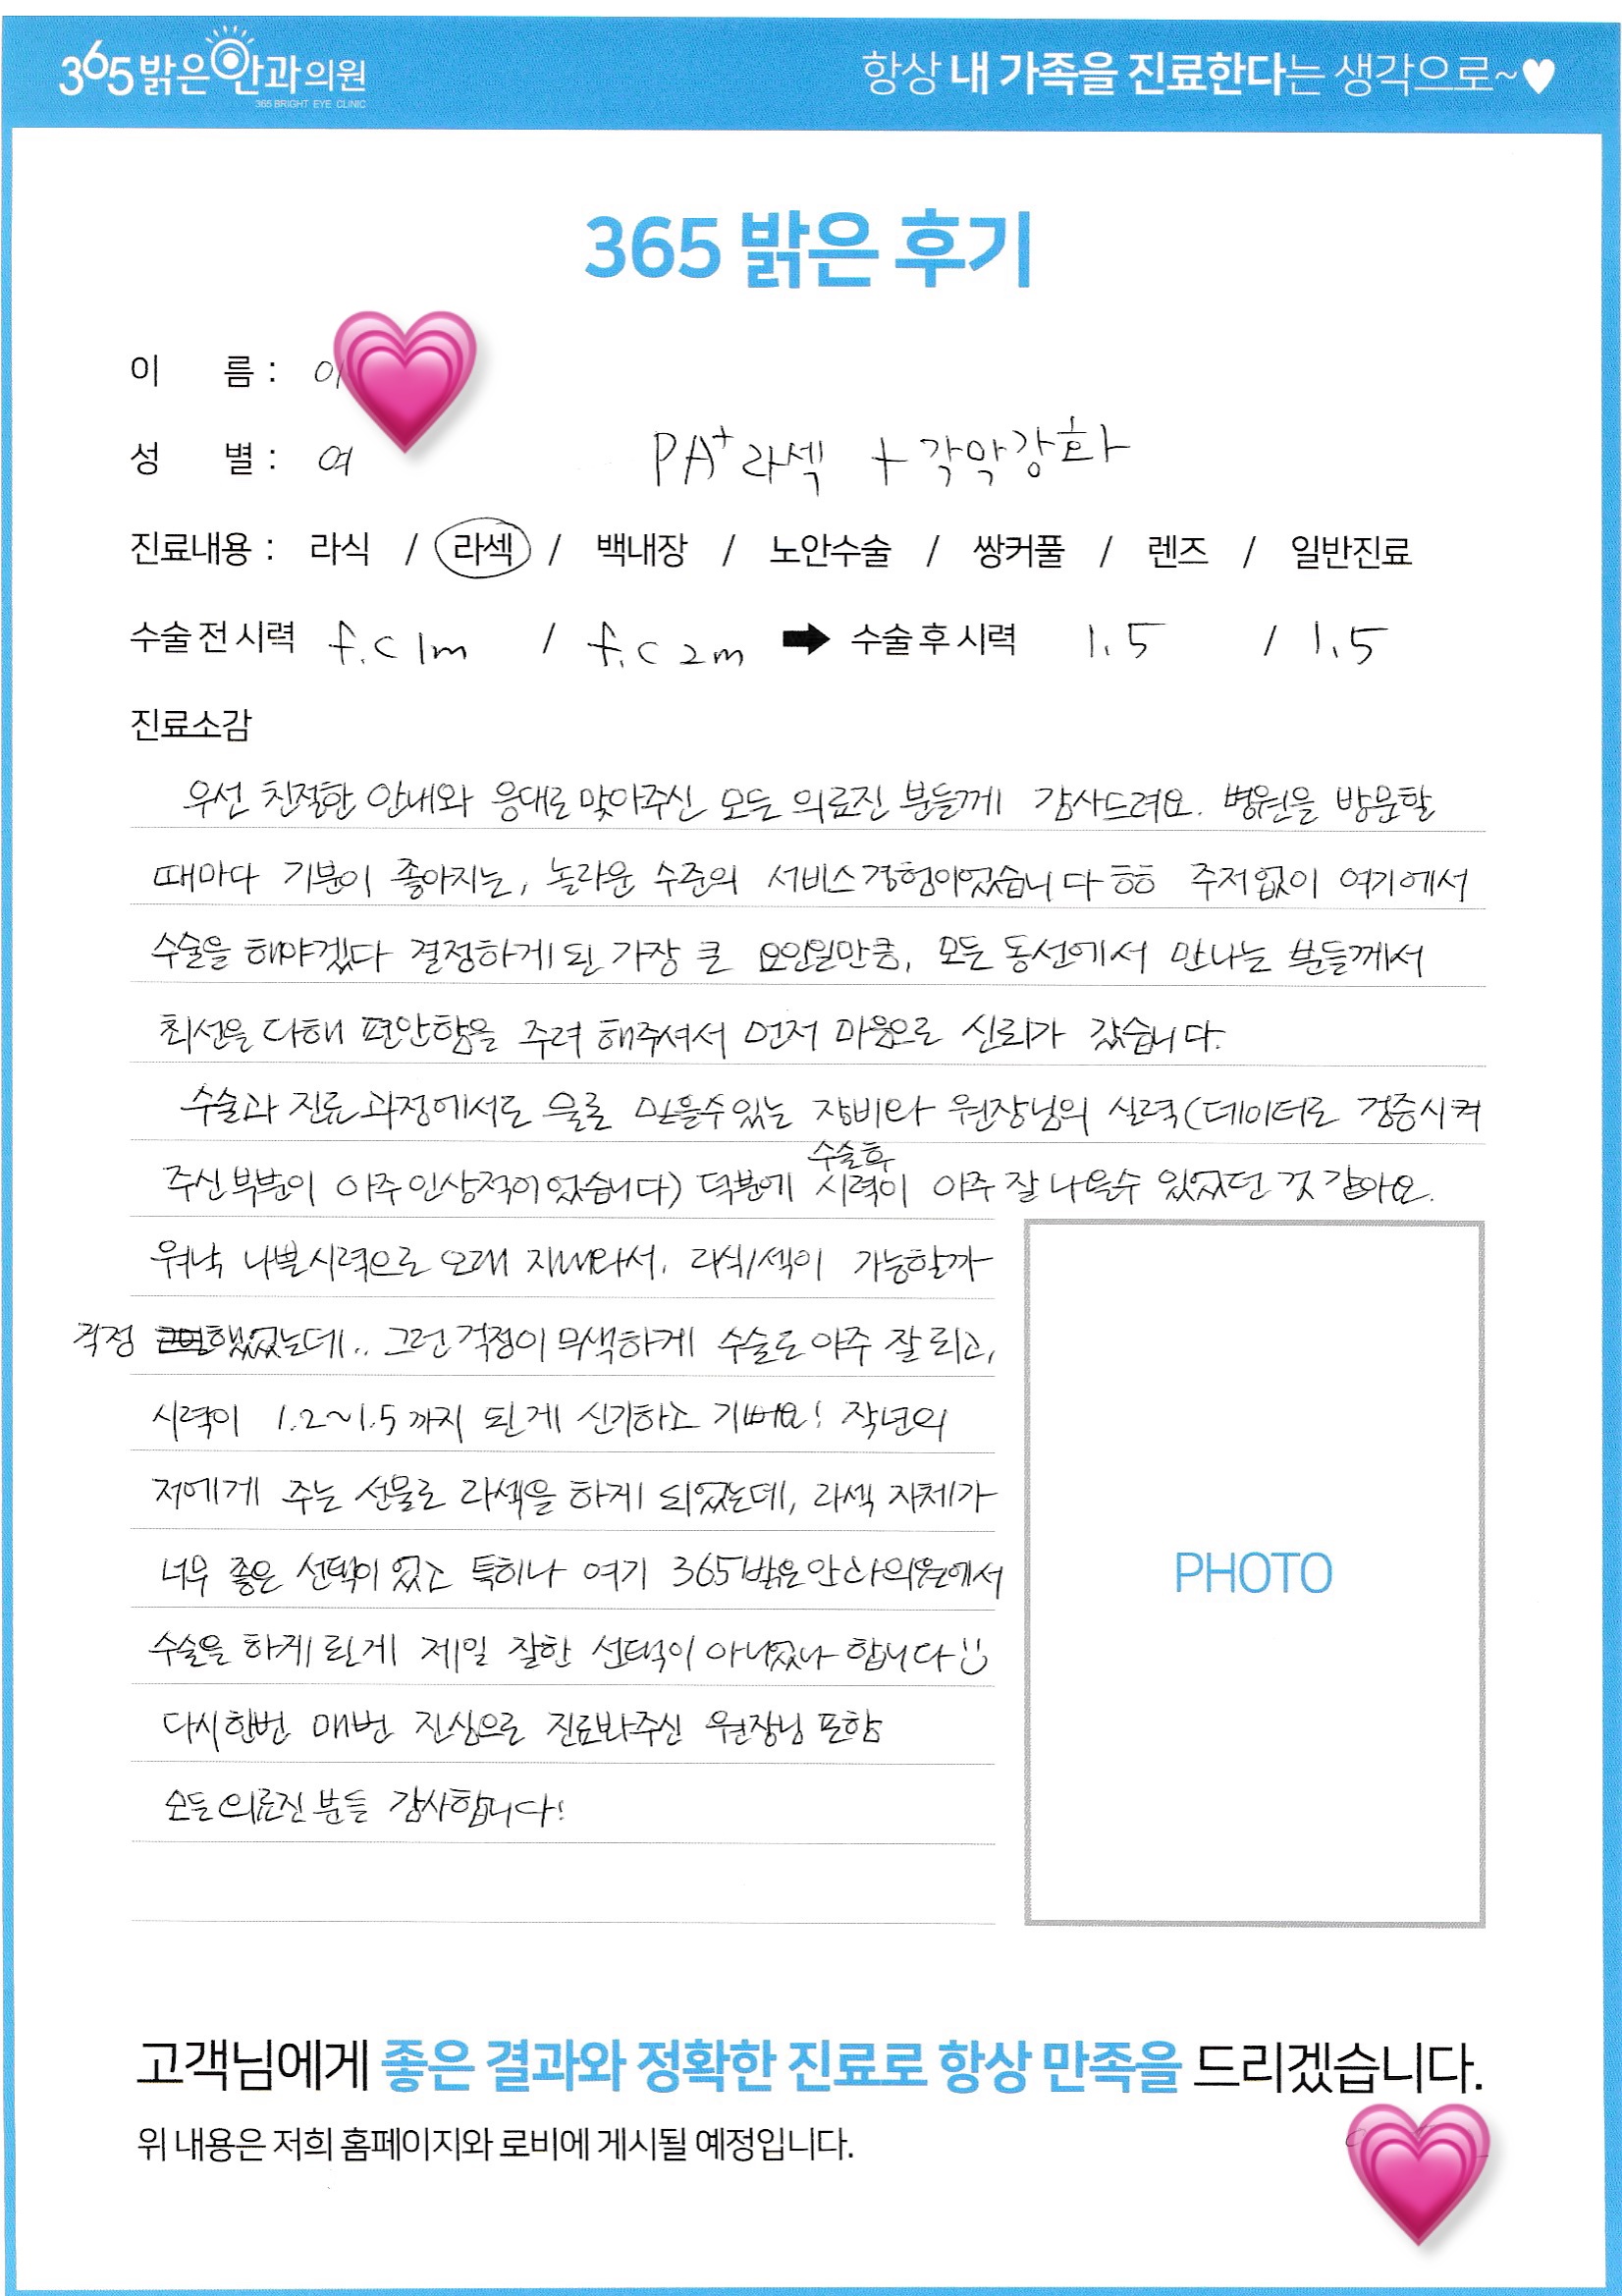 365밝은안과의원
365 BRIGHT EYE CLINIC
항상 내 가족을 진료한다는 생각으로~♥
365 밝은 후기
이 름 : 이
성 별 : 여
PA+라섹 + 각막강화
진료내용 : 라식 / 라섹 / 백내장 / 노안수술 / 쌍커풀 / 렌즈 / 일반진료
수술 전 시력 f.c 1m / f.c 2m ➡ 수술 후 시력 1.5 / 1.5
진료소감
우선 친절한 안내와 응대로 맞아주신 모든 의료진 분들께 감사드려요. 병원을 방문할
때마다 기분이 좋아지는, 놀라운 수준의 서비스경험이었습니다ㅎㅎ 주저없이 여기에서
수술을 해야겠다 결정하게 된 가장 큰 요인일만큼, 모든 동선에서 만나는 분들께서
최선을 다해 편안함을 주려 해주셔서 먼저 마음으로 신뢰가 갔습니다.
수술과 진료 과정에서도 믿을수있는 장비와 원장님의 실력(데이터로 검증시켜
주신 부분이 아주 인상적이었습니다) 덕분에 수술후 시력이 아주 잘 나올수 있었던 것 같아요.
워낙 나쁜시력으로 오래 지내와서, 라식/섹이 가능할까
걱정 했었는데.. 그런 걱정이 무색하게 수술도 아주 잘 되고,
시력이 1.2~1.5까지 된 게 신기하고 기뻐요! 작년의
저에게 주는 선물로 라섹을 하게 되었는데, 라섹 자체가
너무 좋은 선택이 었고 특히나 여기 365밝은안과의원에서
수술을 하게 된게 제일 잘한 선택이 아니었나 합니다
다시한번 매번 진심으로 진료봐주신 원장님 포함
모든 의료진 분들 감사합니다!
PHOTO
고객님에게 좋은 결과와 정확한 진료로 항상 만족을 드리겠습니다.
위 내용은 저희 홈페이지와 로비에 게시될 예정입니다.